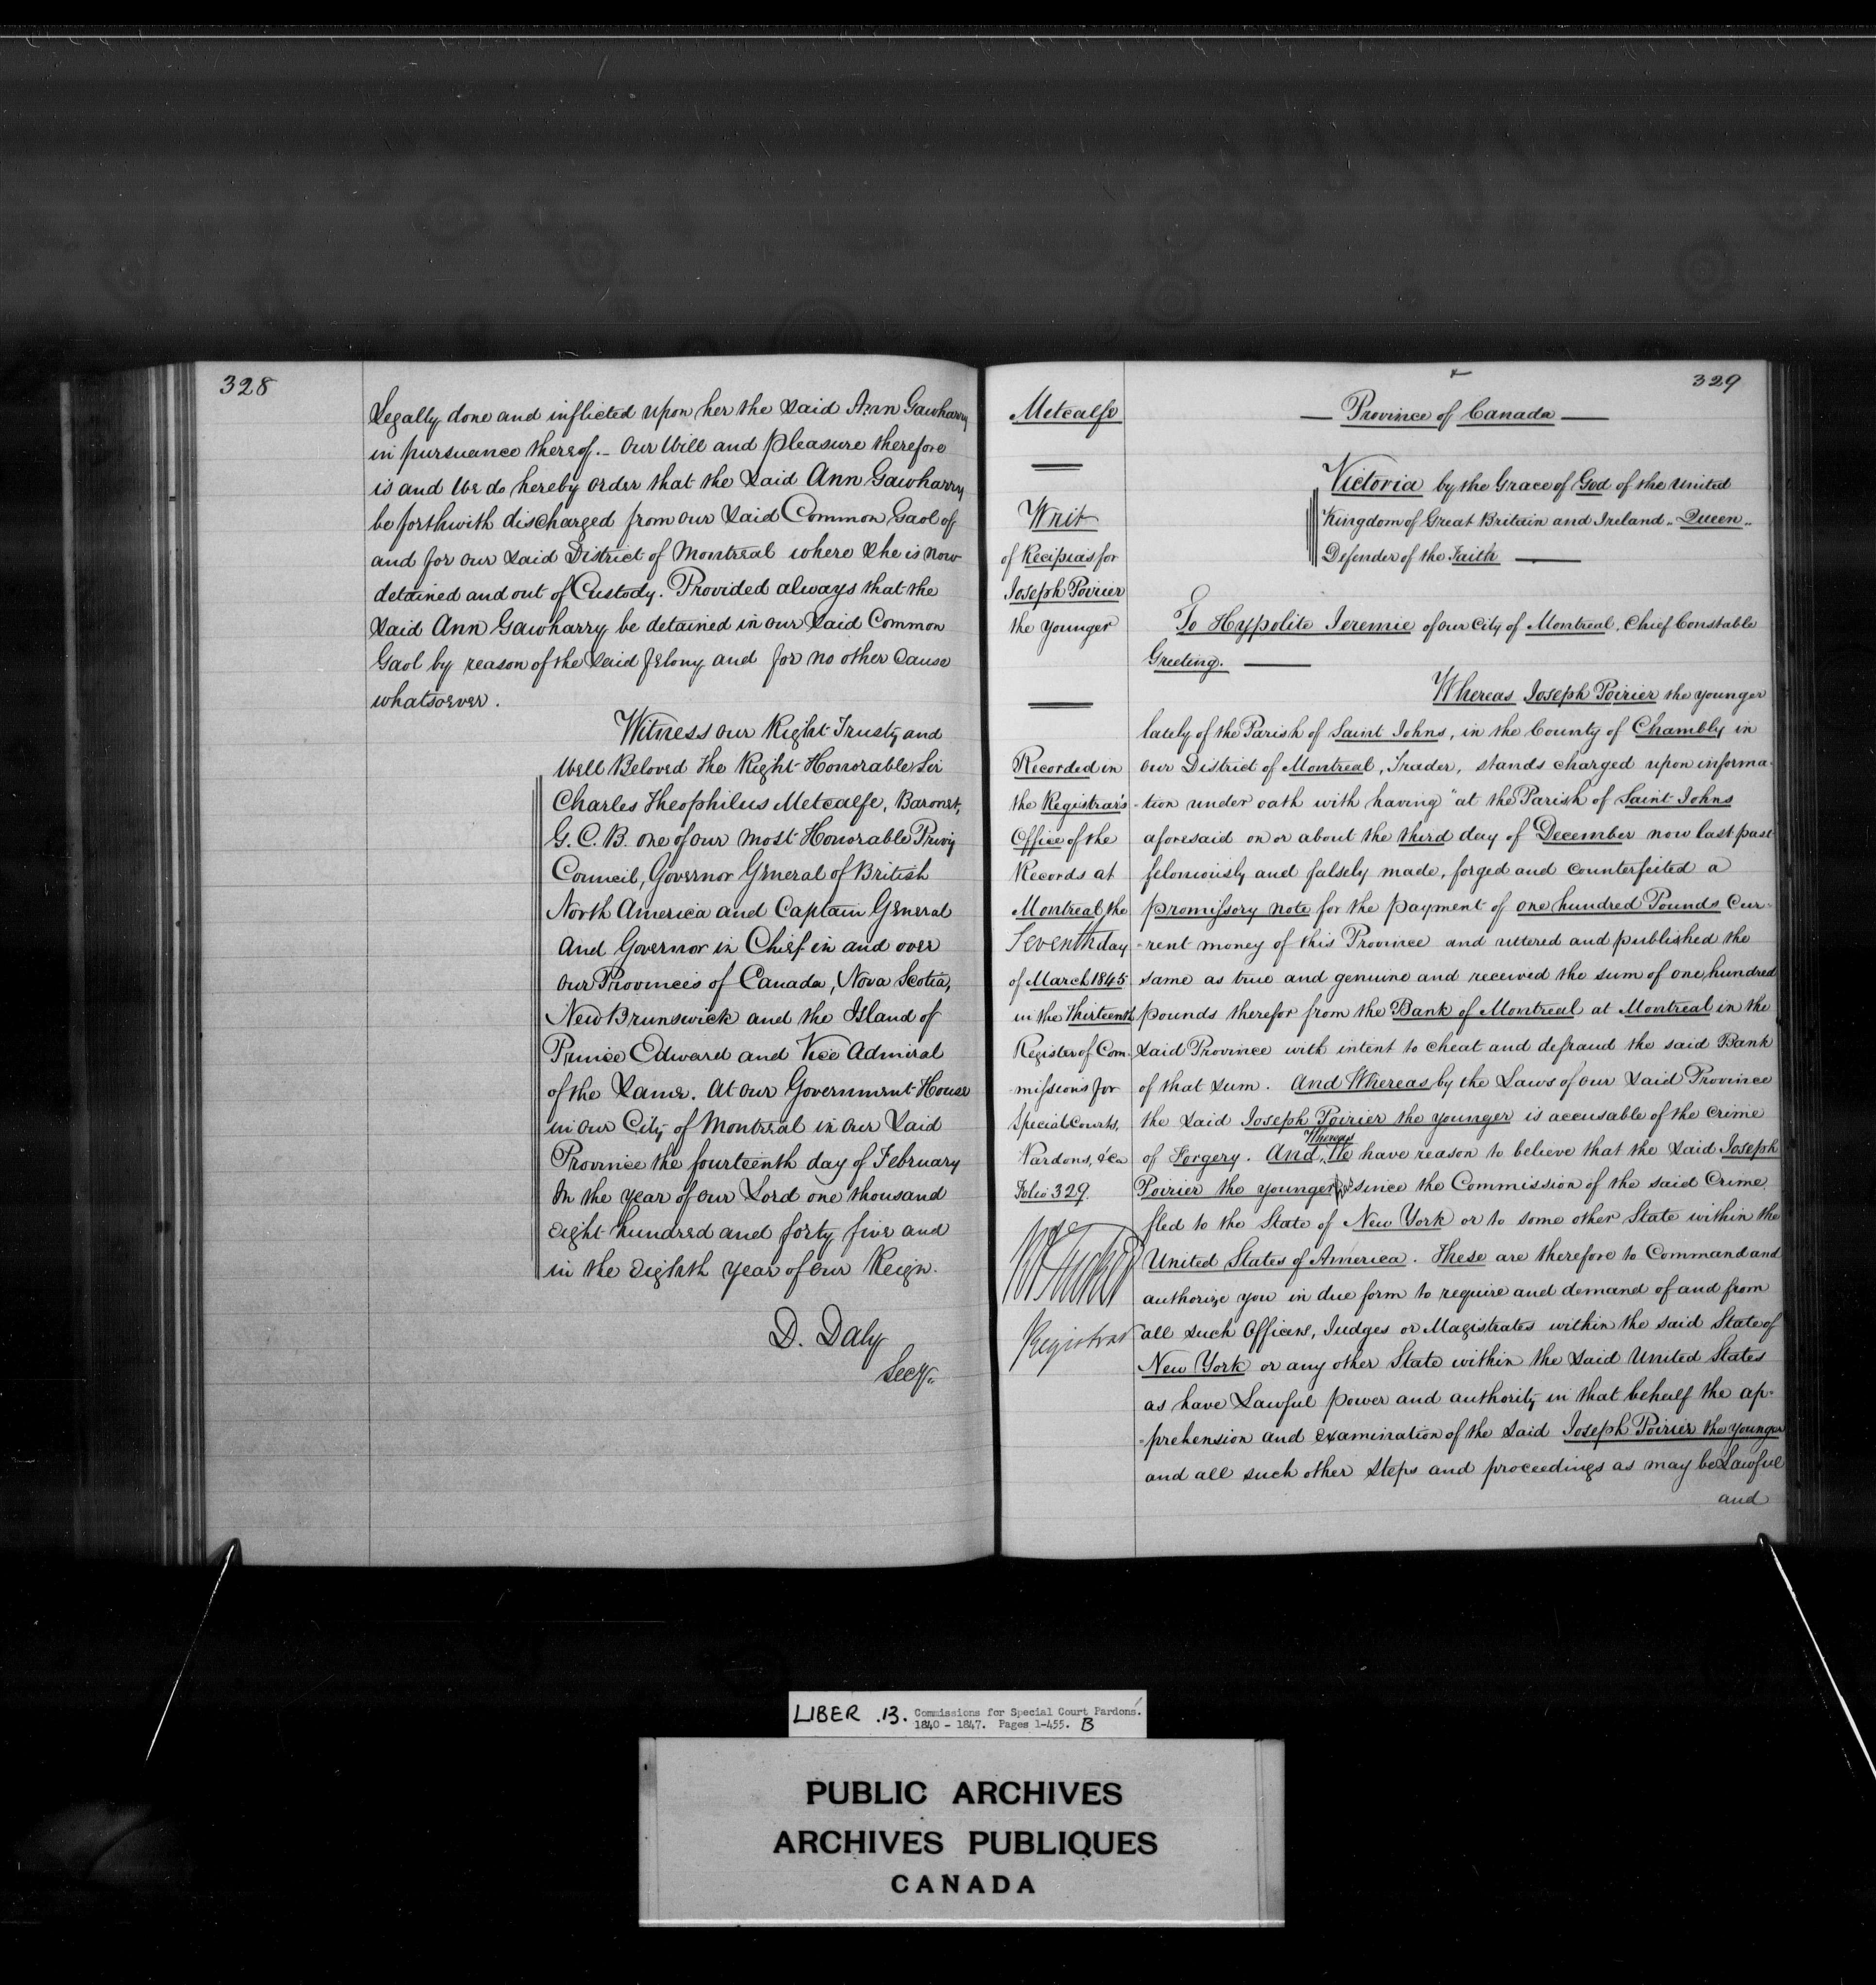 328
Legally done and inflicted upon her the said Ann Gawharry
in pursuance thereof._ Our Will and pleasure therefore
is and We do hereby order that the said Ann Gawharry
be forthwith discharged from our said Common Gaol of
and for our said District of Montreal where she is now
detained and out of Custody. Provided always that the
said Ann Gawharry be detained in our said Common
Gaol by reason of the said felony and for no other Cause
whatsoever.
Witness our Right Trusty and
Well Beloved The Right Honorable Sir
Charles Theophilus Metcalfe, Baronet,
G. C. B. one of our most Honorable Privy
Council, Governor General of British
North America and Captain General
and Governor in Chief in and over
our Provinces of Canada, Nova Scotia,
New Brunswick and the Island of
Prince Edward and Vice Admiral
of the same. At our Government House
in our City of Montreal in our said
Province the fourteenth day of February
In the year of our Lord one thousand
eight hundred and forty five and
in the Eighth year of our Reign.
D. Daly
Secy.
329
Metcalfe
Writ
of Recipias for
Joseph Poirier
the younger
Recorded in
the Registrar's
Office of the
Records at
Montreal, the
Seventh day
of March 1845
in the Thirteenth
Register of Com-
missions for
Special Courts,
Pardons, &ca
Folio 329.
Registrar
— Province of Canada —
Victoria by the Grace of God of the United
Kingdom of Great Britain and Ireland „ Queen „
Defender of the Faith —
To Hypolite Jeremie of our City of Montreal, Chief Constable
Greeting. —
Whereas Joseph Poirier the younger
lately of the Parish of Saint Johns, in the County of Chambly in
our District of Montreal, Trader, stands charged upon informa-
-tion under oath with having "at the Parish of Saint Johns
aforesaid on or about the third day of December now last past
feloniously and falsely made, forged and counterfeited a
promissory note for the payment of one hundred Pounds Cur-
-rent money of this Province and uttered and published the
same as true and genuine and received the sum of one hundred
pounds therefor from the Bank of Montreal at Montreal in the
said Province with intent to cheat and defraud the said Bank
of that sum. And Whereas by the Laws of our said Province
the said Joseph Poirier the younger is accusable of the crime
of Forgery. And Whereas We have reason to believe that the said Joseph
Poirier the younger since the Commission of the said Crime
fled to the State of New York or to some other State within the
United States of America. These are therefore to Command and
authorize you in due form to require and demand of and from
all such Officers, Judges or Magistrates within the said State of
New York or any other State within the said United States
as have Lawful power and authority in that behalf the ap-
-prehension and examination of the said Joseph Poirier the younger
and all such other steps and proceedings as may be Lawful
and
LIBER .13. Commissions for Special Court Pardons.
1840 - 1847. Pages 1-455. B
PUBLIC ARCHIVES
ARCHIVES PUBLIQUES
CANADA